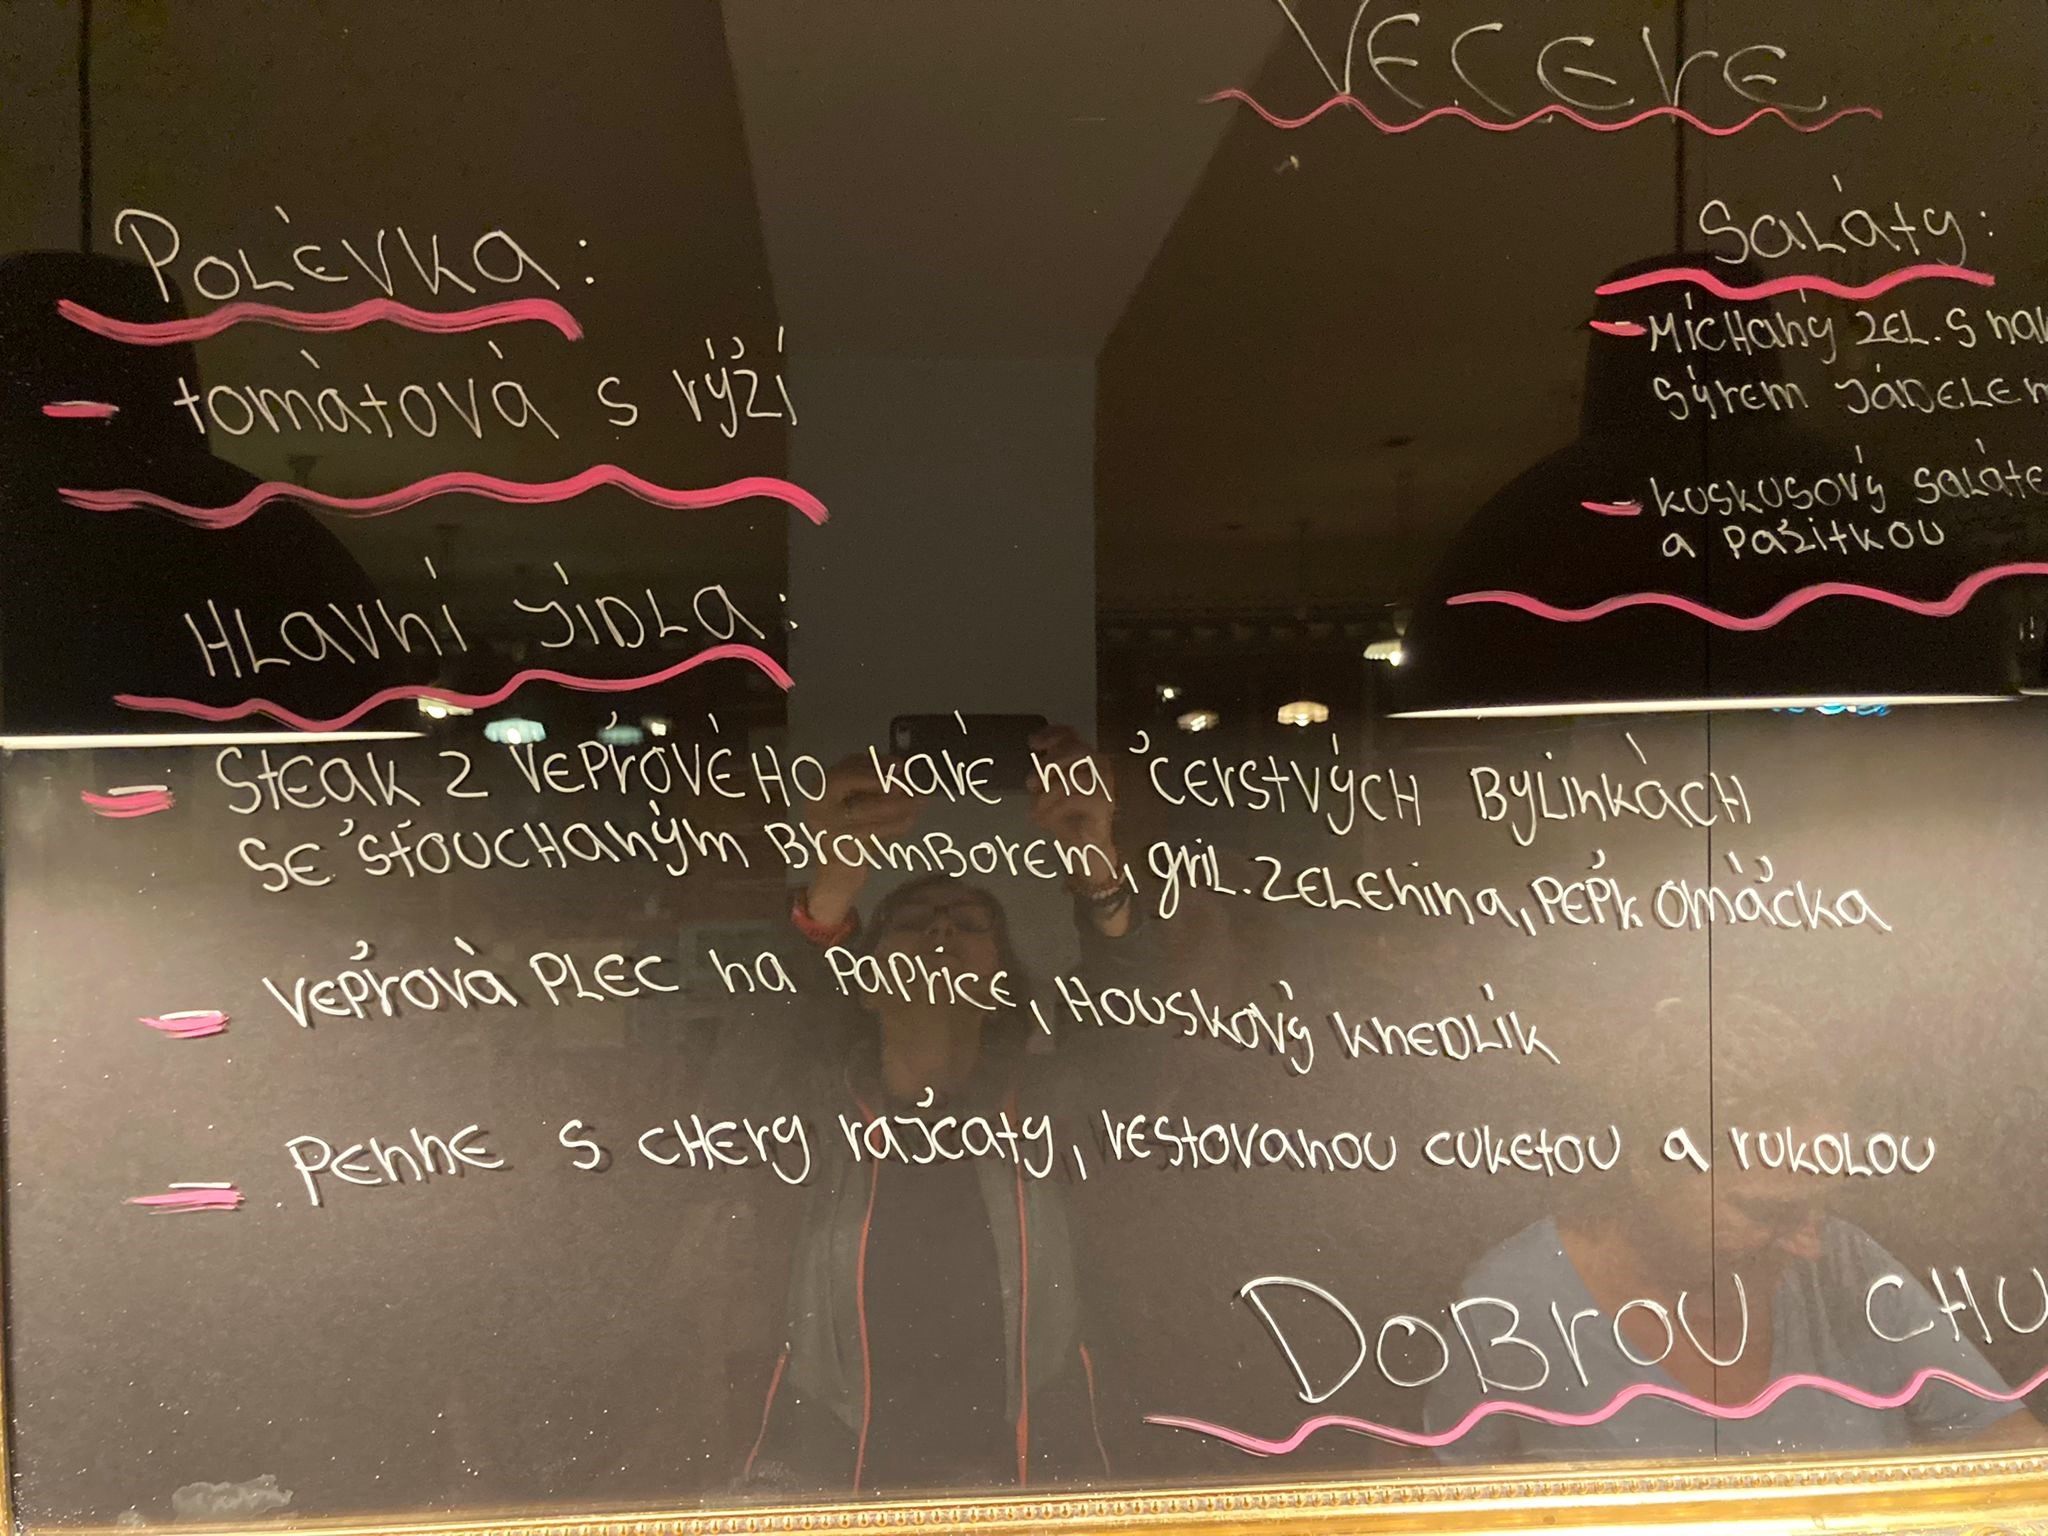 VEČEŘE
POLÉVKA:
- tomátová s rýží
HLAVNÍ JÍDLA:
- STEAK Z VEPŘOVÉHO KARE NA ČERSTVÝCH BYLINKÁCH
SE ŠŤOUCHANÝM BRAMBOREM, gril. ZELENINA, PEPŘ. OMÁČKA
- VEPŘOVÁ PLEC NA PAPRICE, HOUSKOVÝ KNEDLÍK
- PENNE S CHERY RAJČATY, RESTOVANOU CUKETOU A RUKOLOU
Saláty:
- MÍCHANÝ ZEL. S
SÝREM JÁDELEM
- KUSKUSOVÝ
A PAŽITKOU
DOBROU